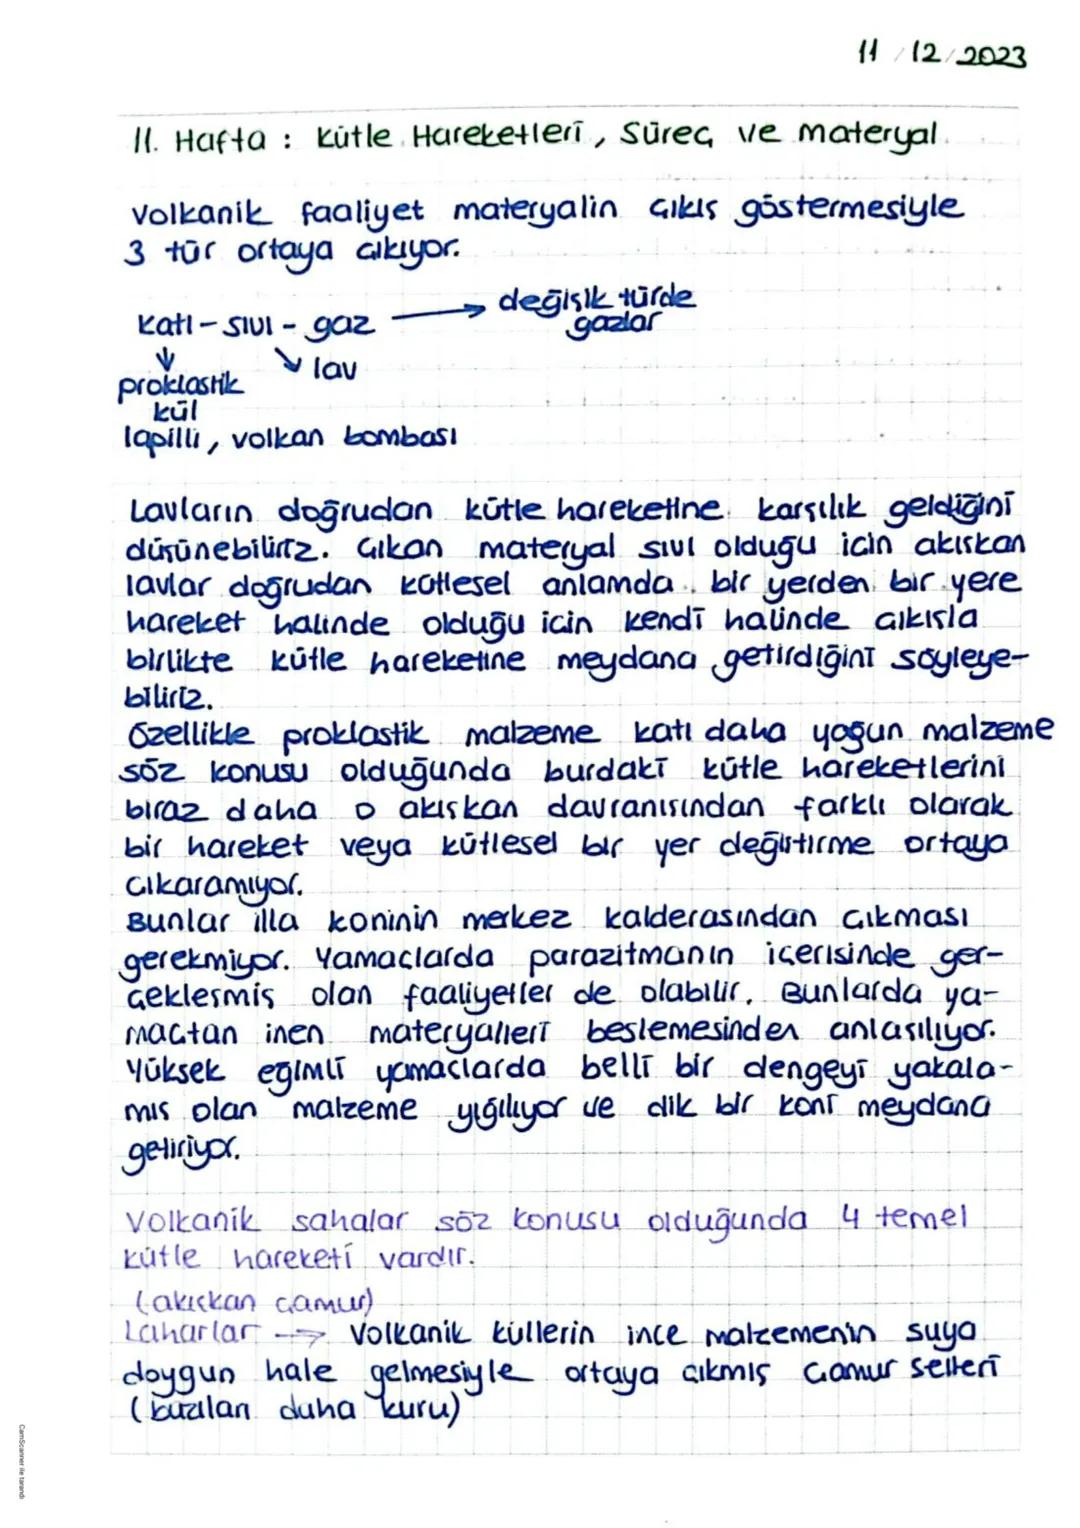 11/12/2023
11. Hafta : Kütle Hareketleri, Süreç ve materyal.
Volkanik faaliyet materyalin çıkış göstermesiyle
3 tür ortaya çıkıyor.
değişik türde
gazlar
Katı - sıvı - gaz
lav
proklastik
kül
lapilli, volkan bombası
Lavların doğrudan kütle hareketine karşılık geldiğini
düşünebiliriz. Çıkan materyal sıvı olduğu için akışkan
lavlar doğrudan kütlesel anlamda bir yerden bir yere
hareket halinde olduğu için kendi halinde çıkışla
birlikte kütle hareketine meydana getirdiğini söyleye-
biliriz.
Özellikle proklastik malzeme katı daha yoğun malzeme
söz konusu olduğunda burdaki kütle hareketlerini
biraz daha o akışkan davranışından farklı olarak
bir hareket veya kütlesel bir yer değiştirme ortaya
çıkaramıyor.
Bunlar illa koninin merkez kalderasından çıkması
gerekmiyor. Yamaçlarda parazitmanın içerisinde ger-
çekleşmiş olan faaliyetler de olabilir. Bunlarda ya-
maçtan inen materyalleri beslemesinden anlaşılıyor.
Yüksek eğimli yamaçlarda belli bir dengeyi yakala-
mış olan malzeme yığılıyor ve dik bir koni meydana
getiriyor.
Volkanik sahalar söz konusu olduğunda 4 temel
kütle hareketi vardır.
(akışkan çamur)
Laharlar → Volkanik küllerin ince malzemenin suya
doygun hale gelmesiyle ortaya çıkmış çamur selleri
(buzulan daha kuru)
CamScanner ile tarandı